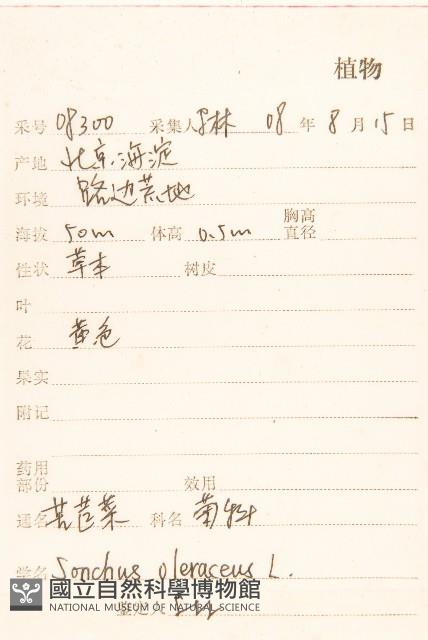 植物
采号 08300 采集人 林 08 年 8 月 15 日
产地 北京海淀
环境 路边荒地
海拔 50m 体高 0.5m 胸高直径
性状 草本 树皮
叶
花 黄色
果实
附记
药用部份 效用
通名 苦苣菜 科名 菊科
学名 Sonchus oleraceus L.
國立自然科學博物館
NATIONAL MUSEUM OF NATURAL SCIENCE